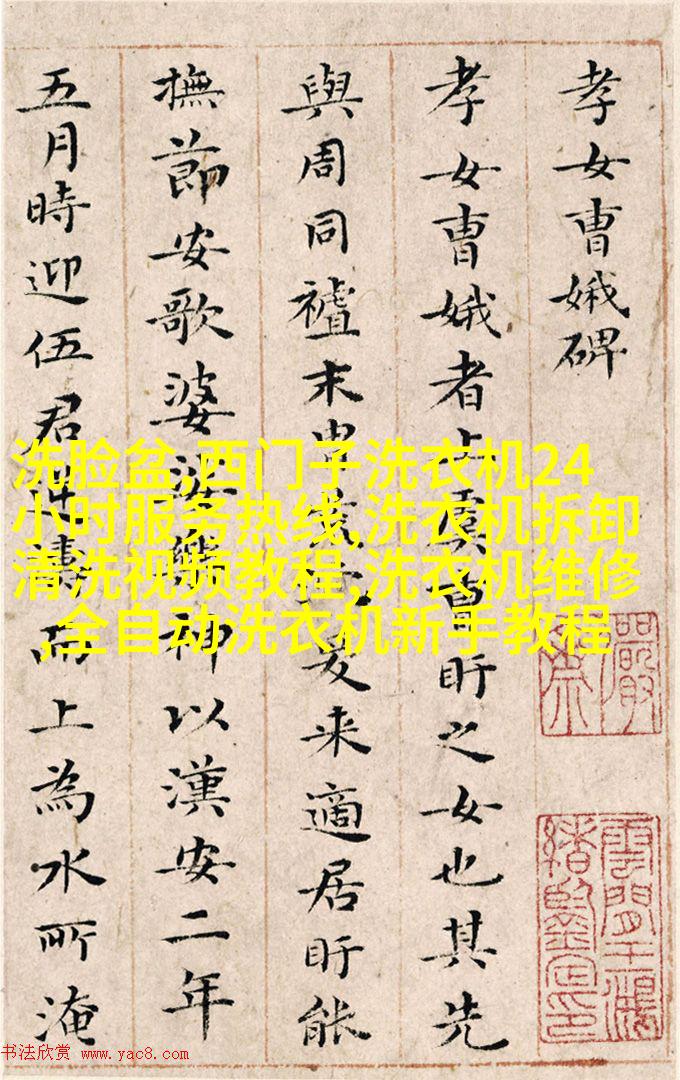 孝女曹娥碑
孝女曹娥者上虞曹盱之女也其先
與周同末爰来適居盱能
撫節安歌婆娑樂神以漢安二年
五月時迎伍君逆濤而上為水所淹
洗脸盆,西门子洗衣机24
小时服务热线,洗衣机拆卸
清洗视频教程,洗衣机维修
,全自动洗衣机新手教程
雲間王鴻
緒鑒定印
书法欣赏 www.yac8.com